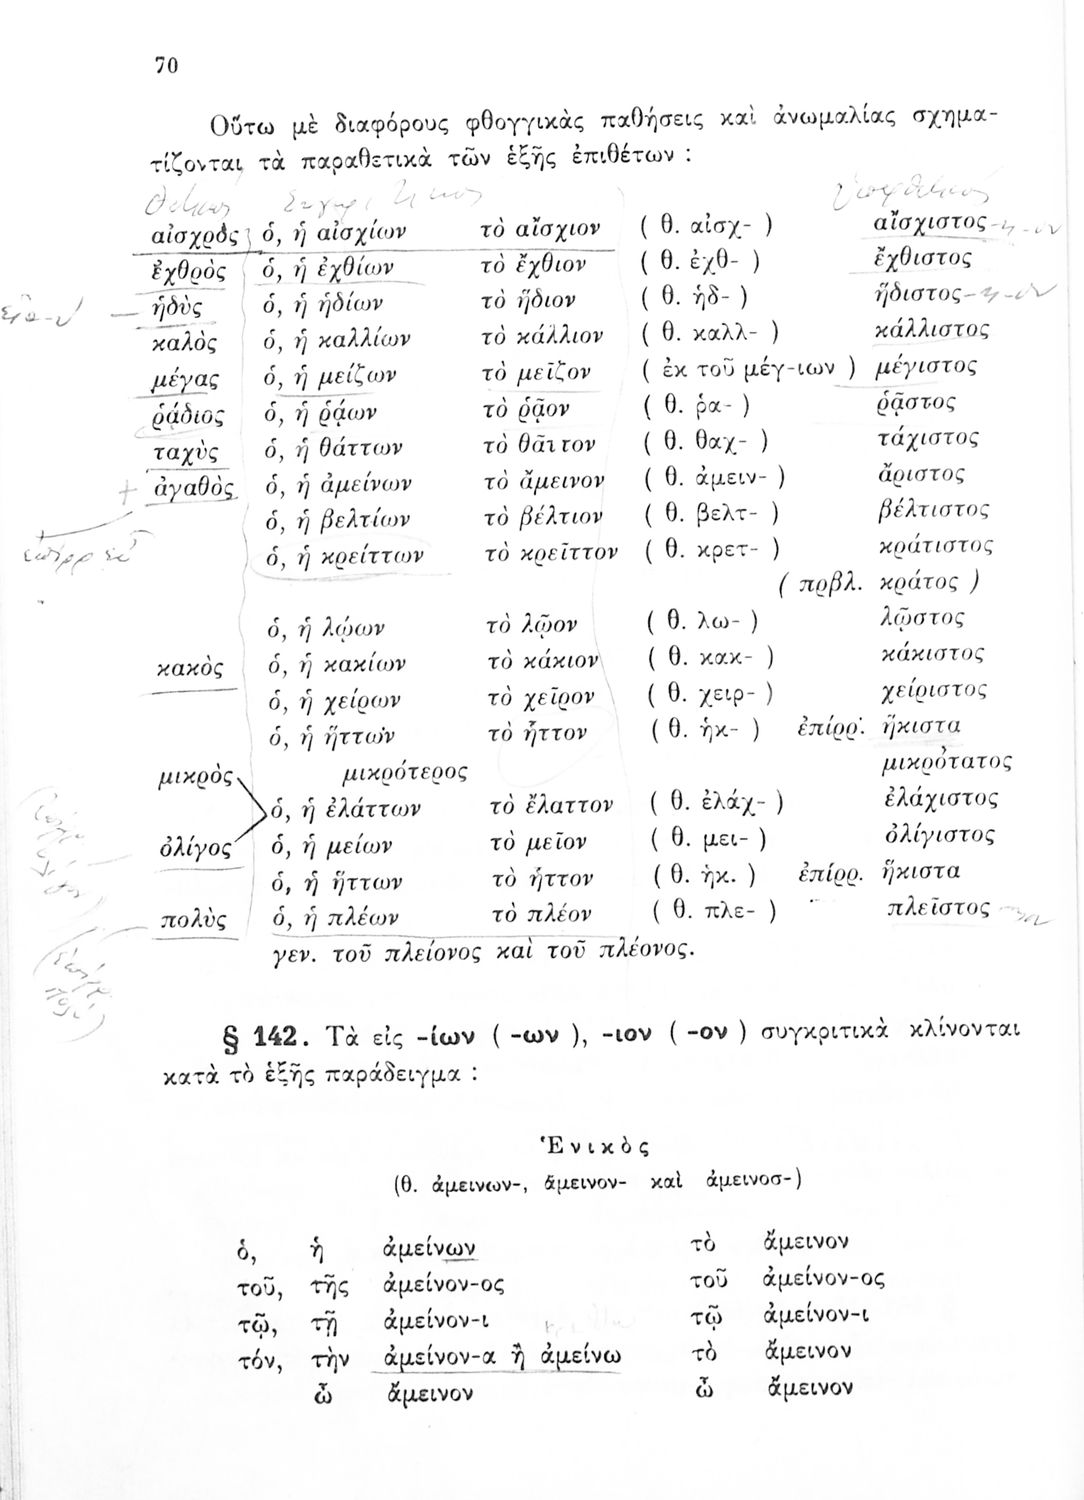 70
Οὕτω μὲ διαφόρους φθογγικὰς παθήσεις καὶ ἀνωμαλίας σχημα-
τίζονται τὰ παραθετικὰ τῶν ἑξῆς ἐπιθέτων :
αἰσχρός ὁ, ἡ αἰσχίων τὸ αἴσχιον ( θ. αἰσχ- ) αἴσχιστος -η -ον
ἐχθρὸς ὁ, ἡ ἐχθίων τὸ ἔχθιον ( θ. ἐχθ- ) ἔχθιστος
ἡδὺς ὁ, ἡ ἡδίων τὸ ἥδιον ( θ. ἡδ- ) ἥδιστος -η -ον
καλὸς ὁ, ἡ καλλίων τὸ κάλλιον ( θ. καλλ- ) κάλλιστος
μέγας ὁ, ἡ μείζων τὸ μεῖζον ( ἐκ τοῦ μέγ-ιων ) μέγιστος
ῥᾴδιος ὁ, ἡ ῥᾴων τὸ ῥᾷον ( θ. ῥα- ) ῥᾷστος
ταχὺς ὁ, ἡ θάττων τὸ θᾶττον ( θ. θαχ- ) τάχιστος
ἀγαθὸς ὁ, ἡ ἀμείνων τὸ ἄμεινον ( θ. ἀμειν- ) ἄριστος
ὁ, ἡ βελτίων τὸ βέλτιον ( θ. βελτ- ) βέλτιστος
ὁ, ἡ κρείττων τὸ κρεῖττον ( θ. κρετ- ) κράτιστος
( πρβλ. κράτος )
ὁ, ἡ λῴων τὸ λῷον ( θ. λω- ) λῷστος
κακὸς ὁ, ἡ κακίων τὸ κάκιον ( θ. κακ- ) κάκιστος
ὁ, ἡ χείρων τὸ χεῖρον ( θ. χειρ- ) χείριστος
ὁ, ἡ ἥττων τὸ ἧττον ( θ. ἡκ- ) ἐπίρρ. ἥκιστα
μικρὸς μικρότερος μικρότατος
ὁ, ἡ ἐλάττων τὸ ἔλαττον ( θ. ἐλάχ- ) ἐλάχιστος
ὀλίγος ὁ, ἡ μείων τὸ μεῖον ( θ. μει- ) ὀλίγιστος
ὁ, ἡ ἥττων τὸ ἧττον ( θ. ἡκ. ) ἐπίρρ. ἥκιστα
πολὺς ὁ, ἡ πλέων τὸ πλέον ( θ. πλε- ) πλεῖστος
γεν. τοῦ πλείονος καὶ τοῦ πλέονος.
§ 142. Τὰ εἰς -ίων ( -ων ), -ιον ( -ον ) συγκριτικὰ κλίνονται
κατὰ τὸ ἑξῆς παράδειγμα :
Ἑνικὸς
(θ. ἀμεινων-, ἄμεινον- καὶ ἀμεινοσ-)
ὁ, ἡ ἀμείνων τὸ ἄμεινον
τοῦ, τῆς ἀμείνον-ος τοῦ ἀμείνον-ος
τῷ, τῇ ἀμείνον-ι τῷ ἀμείνον-ι
τόν, τὴν ἀμείνον-α ἢ ἀμείνω τὸ ἄμεινον
ὦ ἄμεινον ὦ ἄμεινον